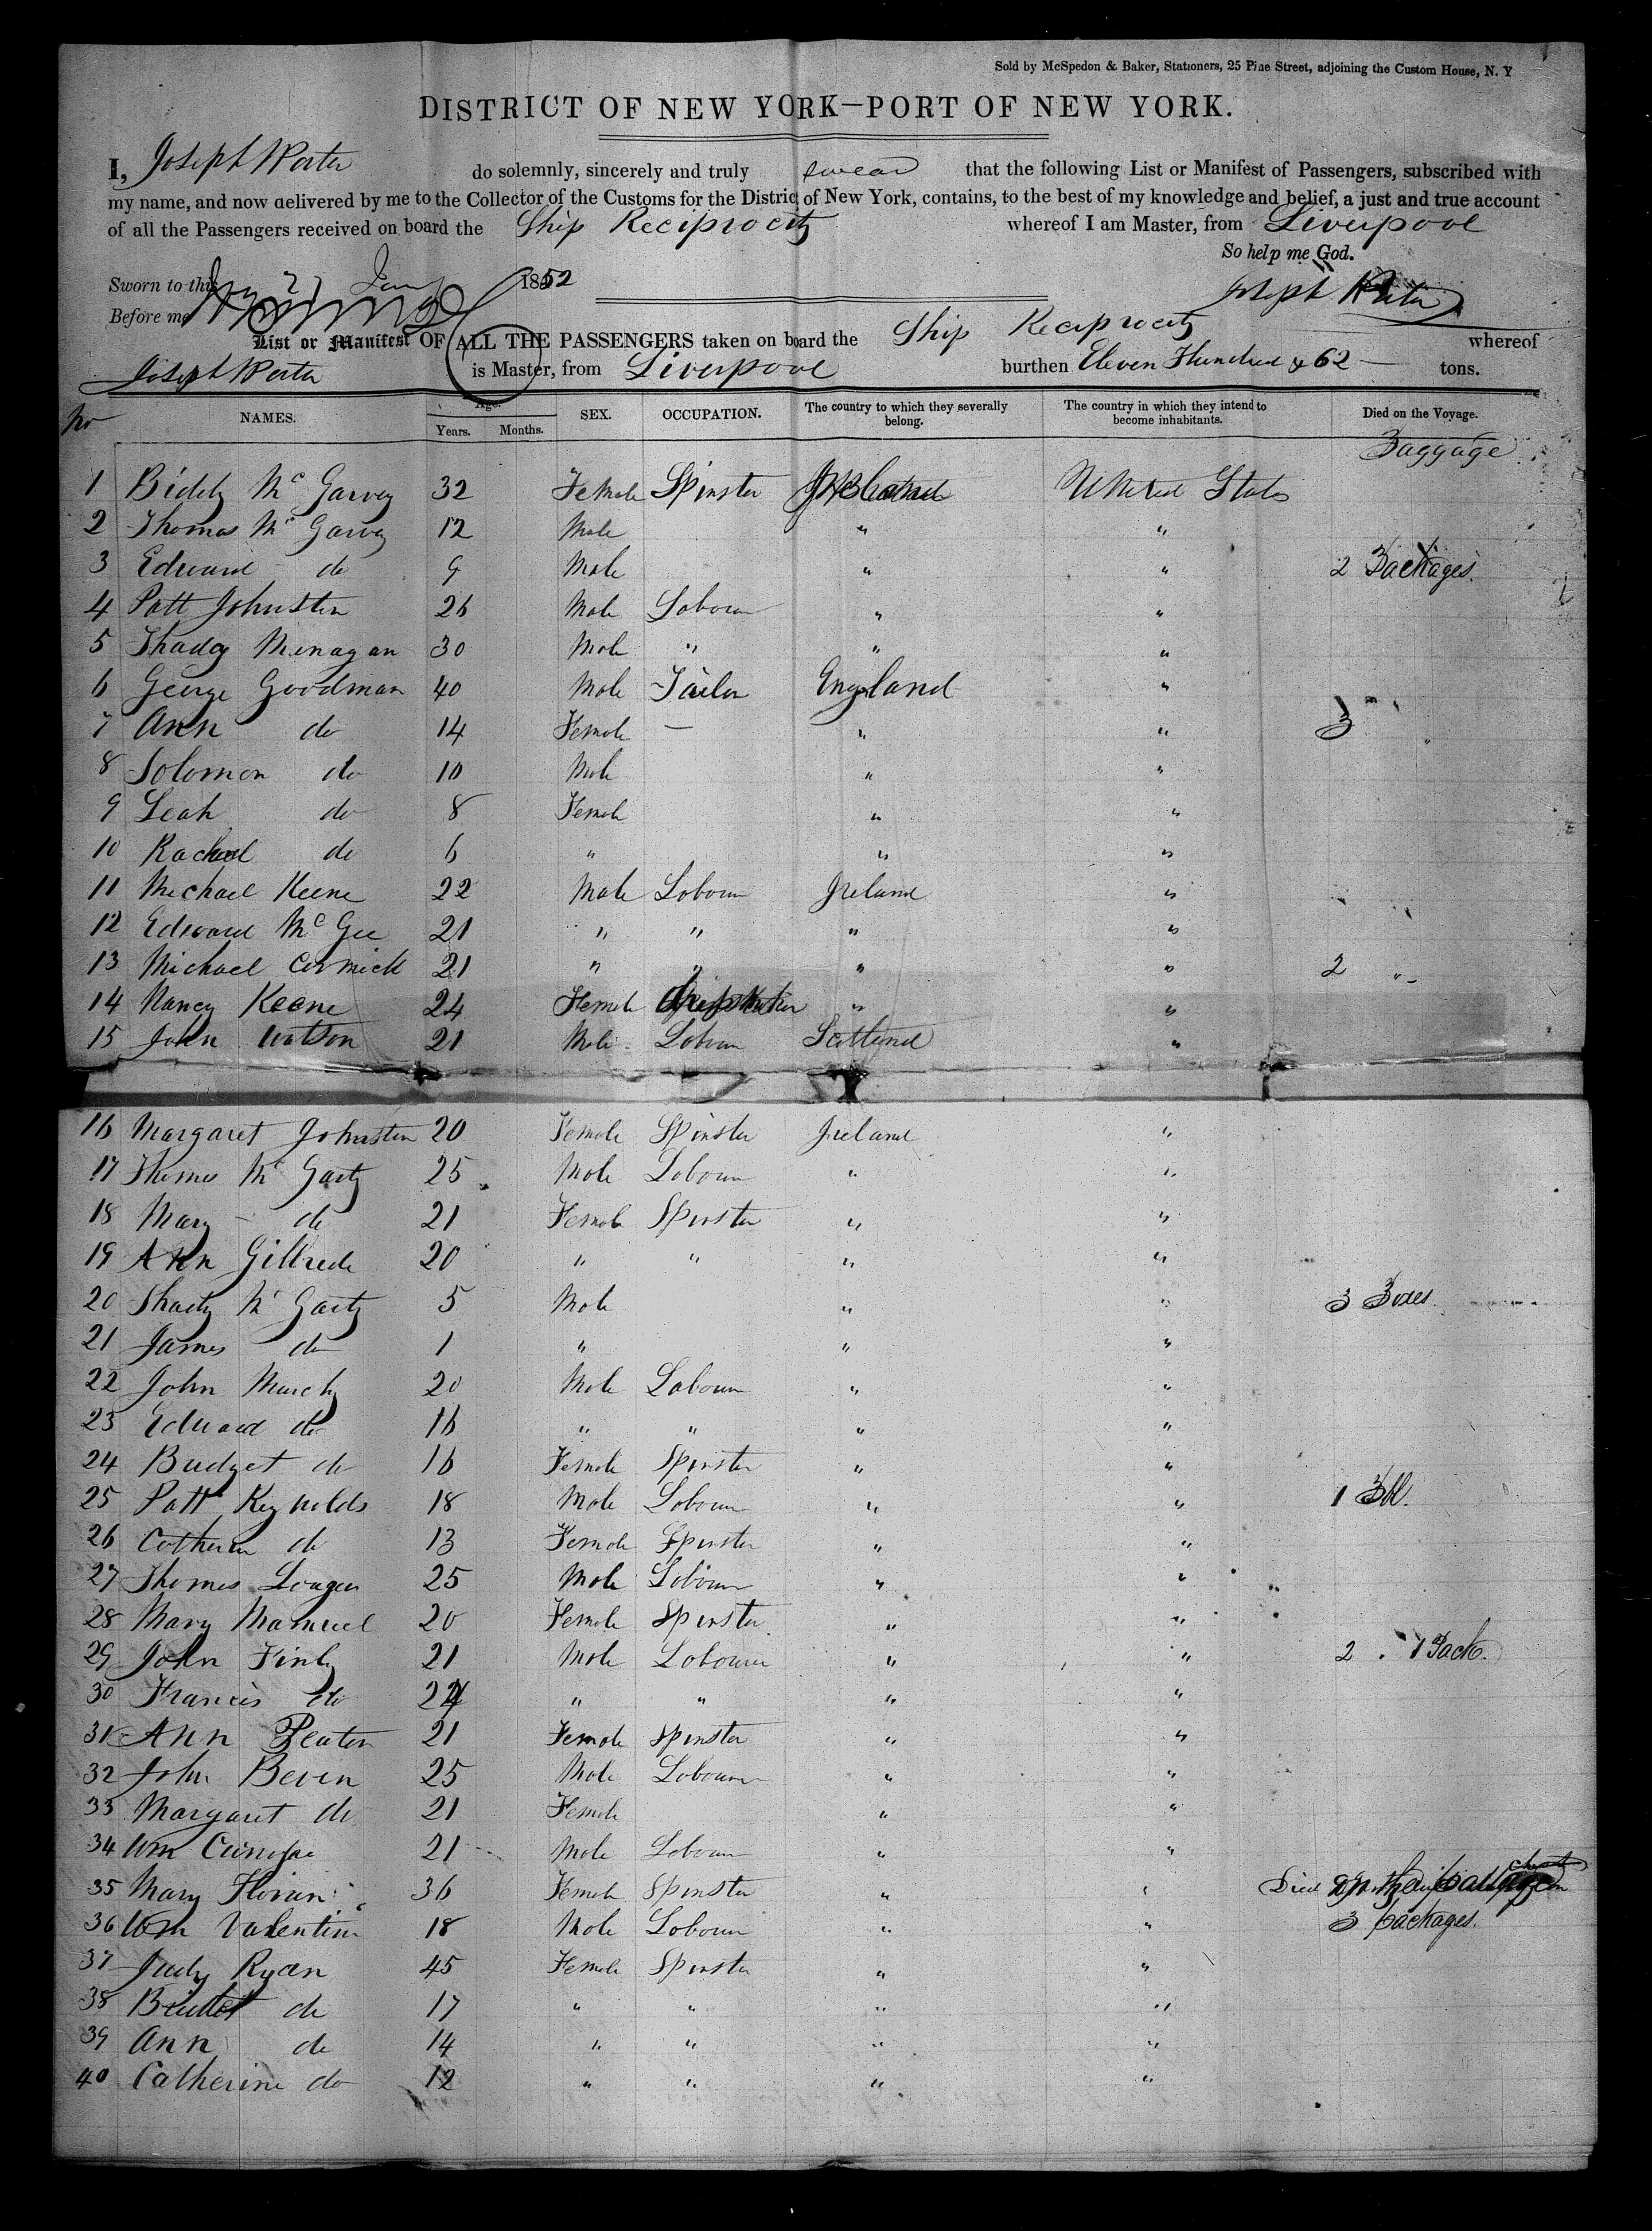 Sold by McSpedon & Baker, Stationers, 25 Pine Street, adjoining the Custom House, N. Y
DISTRICT OF NEW YORK—PORT OF NEW YORK.
I, Joseph Porter do solemnly, sincerely and truly swear that the following List or Manifest of Passengers, subscribed with
my name, and now delivered by me to the Collector of the Customs for the District of New York, contains, to the best of my knowledge and belief, a just and true account
of all the Passengers received on board the Ship Reciprocity whereof I am Master, from Liverpool
So help me God.
Sworn to this 1852
Joseph Porter
Before me
List or Manifest OF ALL THE PASSENGERS taken on board the Ship Reciprocity whereof
Joseph Porter is Master, from Liverpool burthen Eleven Hundred & 62 tons.
No NAMES. Age. Years. Months. SEX. OCCUPATION. The country to which they severally belong. The country in which they intend to become inhabitants. Died on the Voyage.
Baggage
1 Biddy Mc Garvey 32 Female Spinster Ireland United States
2 Thomas Mc Garvey 12 Male " "
3 Edward do 9 Male " " 2 Packages.
4 Patt Johnston 26 Male Labourer " "
5 Thady Menagan 30 Male " " "
6 George Goodman 40 Male Tailor England "
7 Ann do 14 Female — " " 3 "
8 Solomon do 10 Male " "
9 Leah do 8 Female " "
10 Rachael do 6 " " "
11 Michael Keene 22 Male Labour Ireland "
12 Edward Mc Gee 21 " " " "
13 Michael Cormick 21 " " " " 2 "
14 Nancy Keene 24 Female " "
15 John Watson 21 Male Labour Scotland "
16 Margaret Johnston 20 Female Spinster Ireland "
17 Thomas Mc Garty 25 Male Labour " "
18 Mary do 21 Female Spinster " "
19 Ann Gilbrede 20 " " " "
20 Thady Mc Garty 5 Male " " 3 Boxes.
21 James do 1 " " "
22 John Murchy 20 Male Labour " "
23 Edward do 16 " " " "
24 Budget do 16 Female Spinster " "
25 Patt Reynolds 18 Male Labour " " 1 Bbl.
26 Catherin do 13 Female Spinster " "
27 Thomas Longen 25 Male Labour " "
28 Mary Manuel 20 Female Spinster " "
29 John Finly 21 Male Labourer " " 2 Pack.
30 Francis do 24 " " " "
31 Ann Peaton 21 Female Spinster " "
32 John Beven 25 Male Labour " "
33 Margaret do 21 Female " "
34 Wm 21 Male Labour " "
35 Mary Horan 36 Female Spinster " " Died
36 Wm Valentine 18 Male Labour " " 3 packages.
37 Judy Ryan 45 Female Spinster " "
38 do 17 " " " "
39 Ann do 14 " " " "
40 Catherine do 12 " " " "